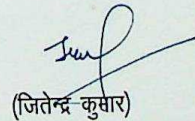 (जितेन्द्र कुमार)